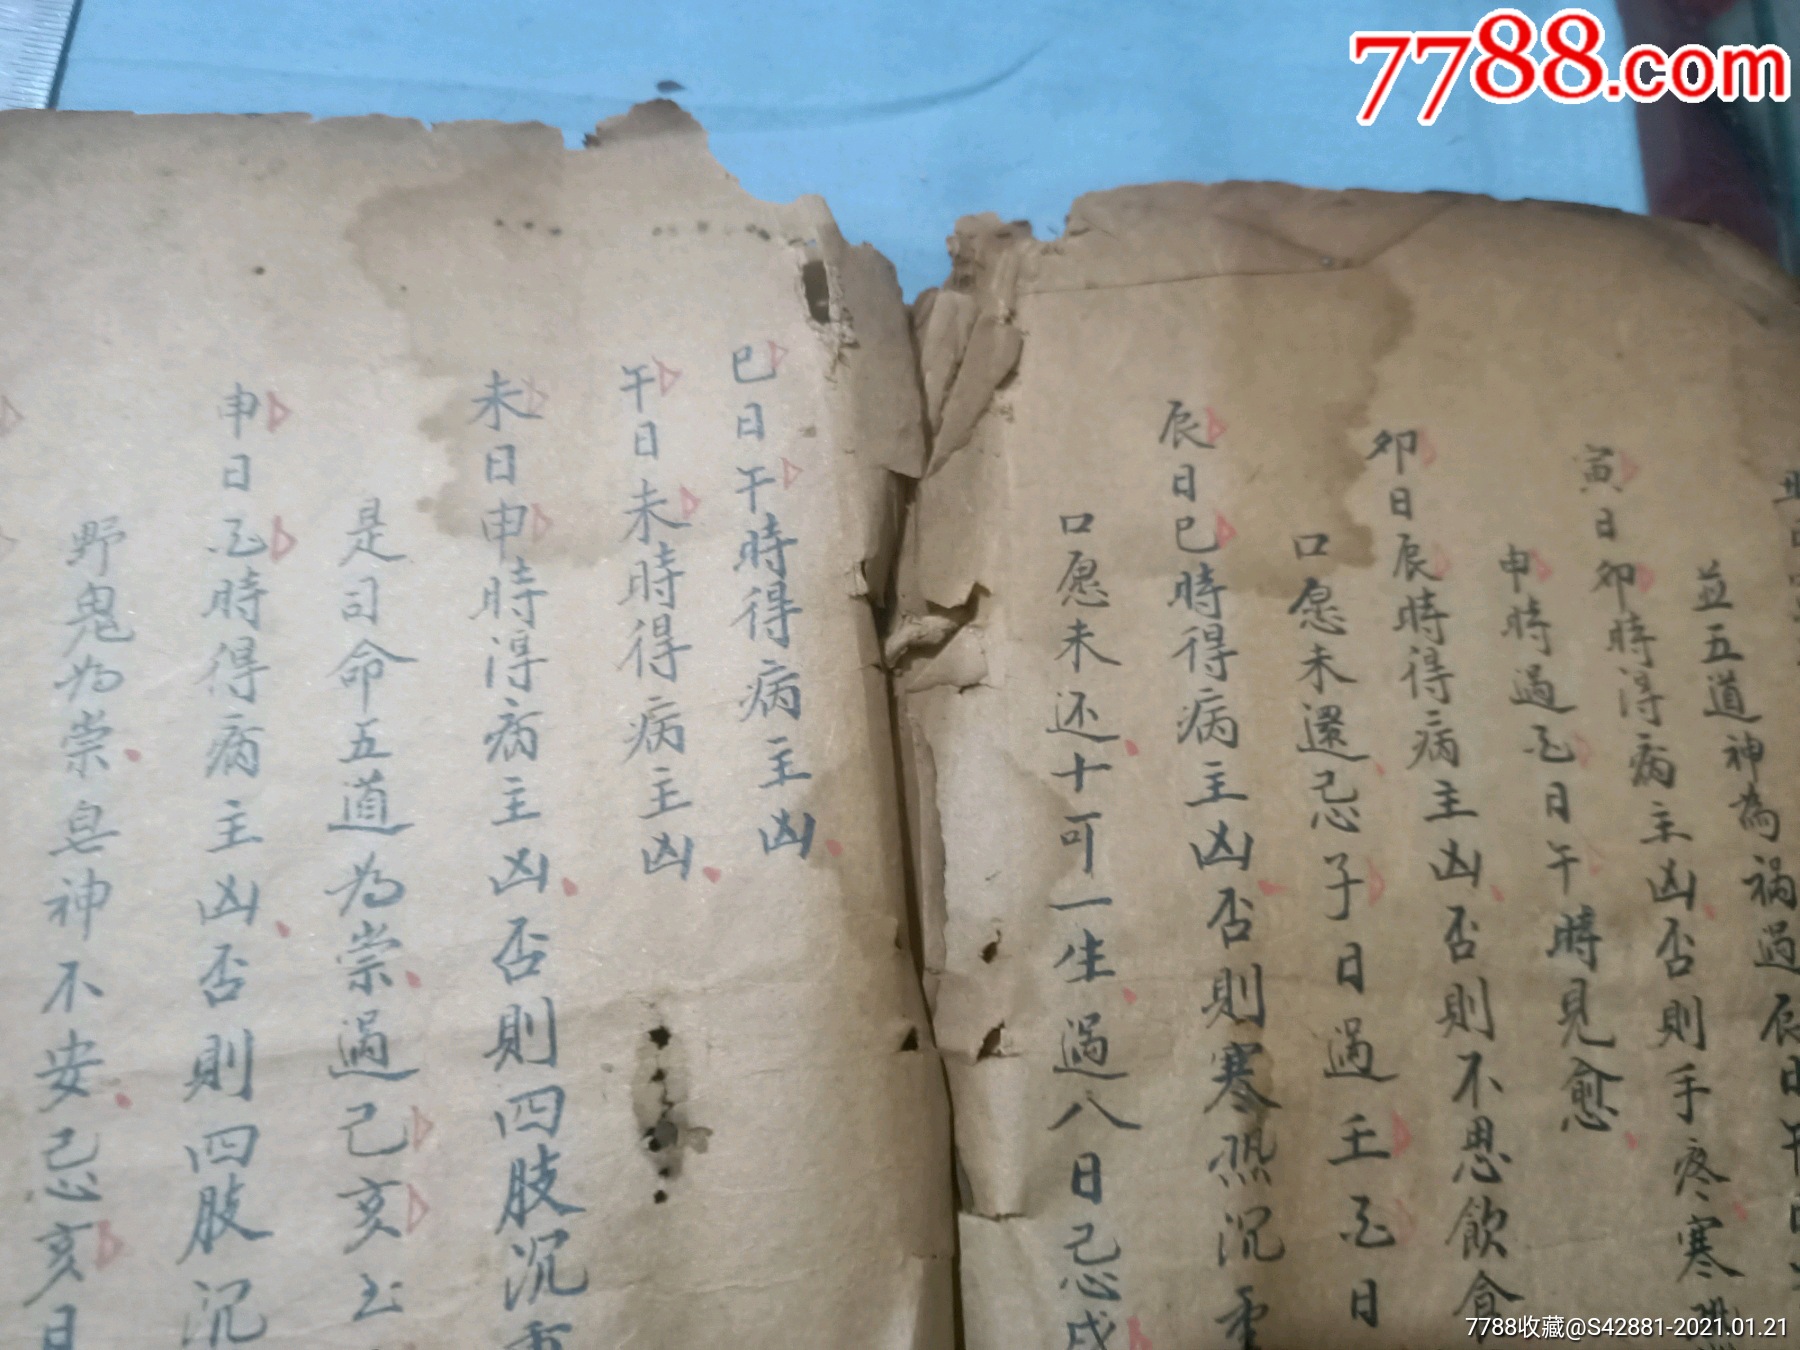 7788.com
並五道神為禍過辰日午
寅日卯時得病主凶否則手疼寒
申時過酉日午時見愈
卯日辰時得病主凶否則不思飲食
口愿未還忌子日過壬酉日
辰日巳時得病主凶否則寒热沉重
口愿未还十可一生過八日忌戌
巳日午時得病主凶
午日未時得病主凶
未日申時得病主凶否則四肢沉重
是司命五道为祟過己亥
申日酉時得病主凶否則四肢沉
野鬼为祟皂神不安忌亥日
7788收藏@S42881-2021.01.21